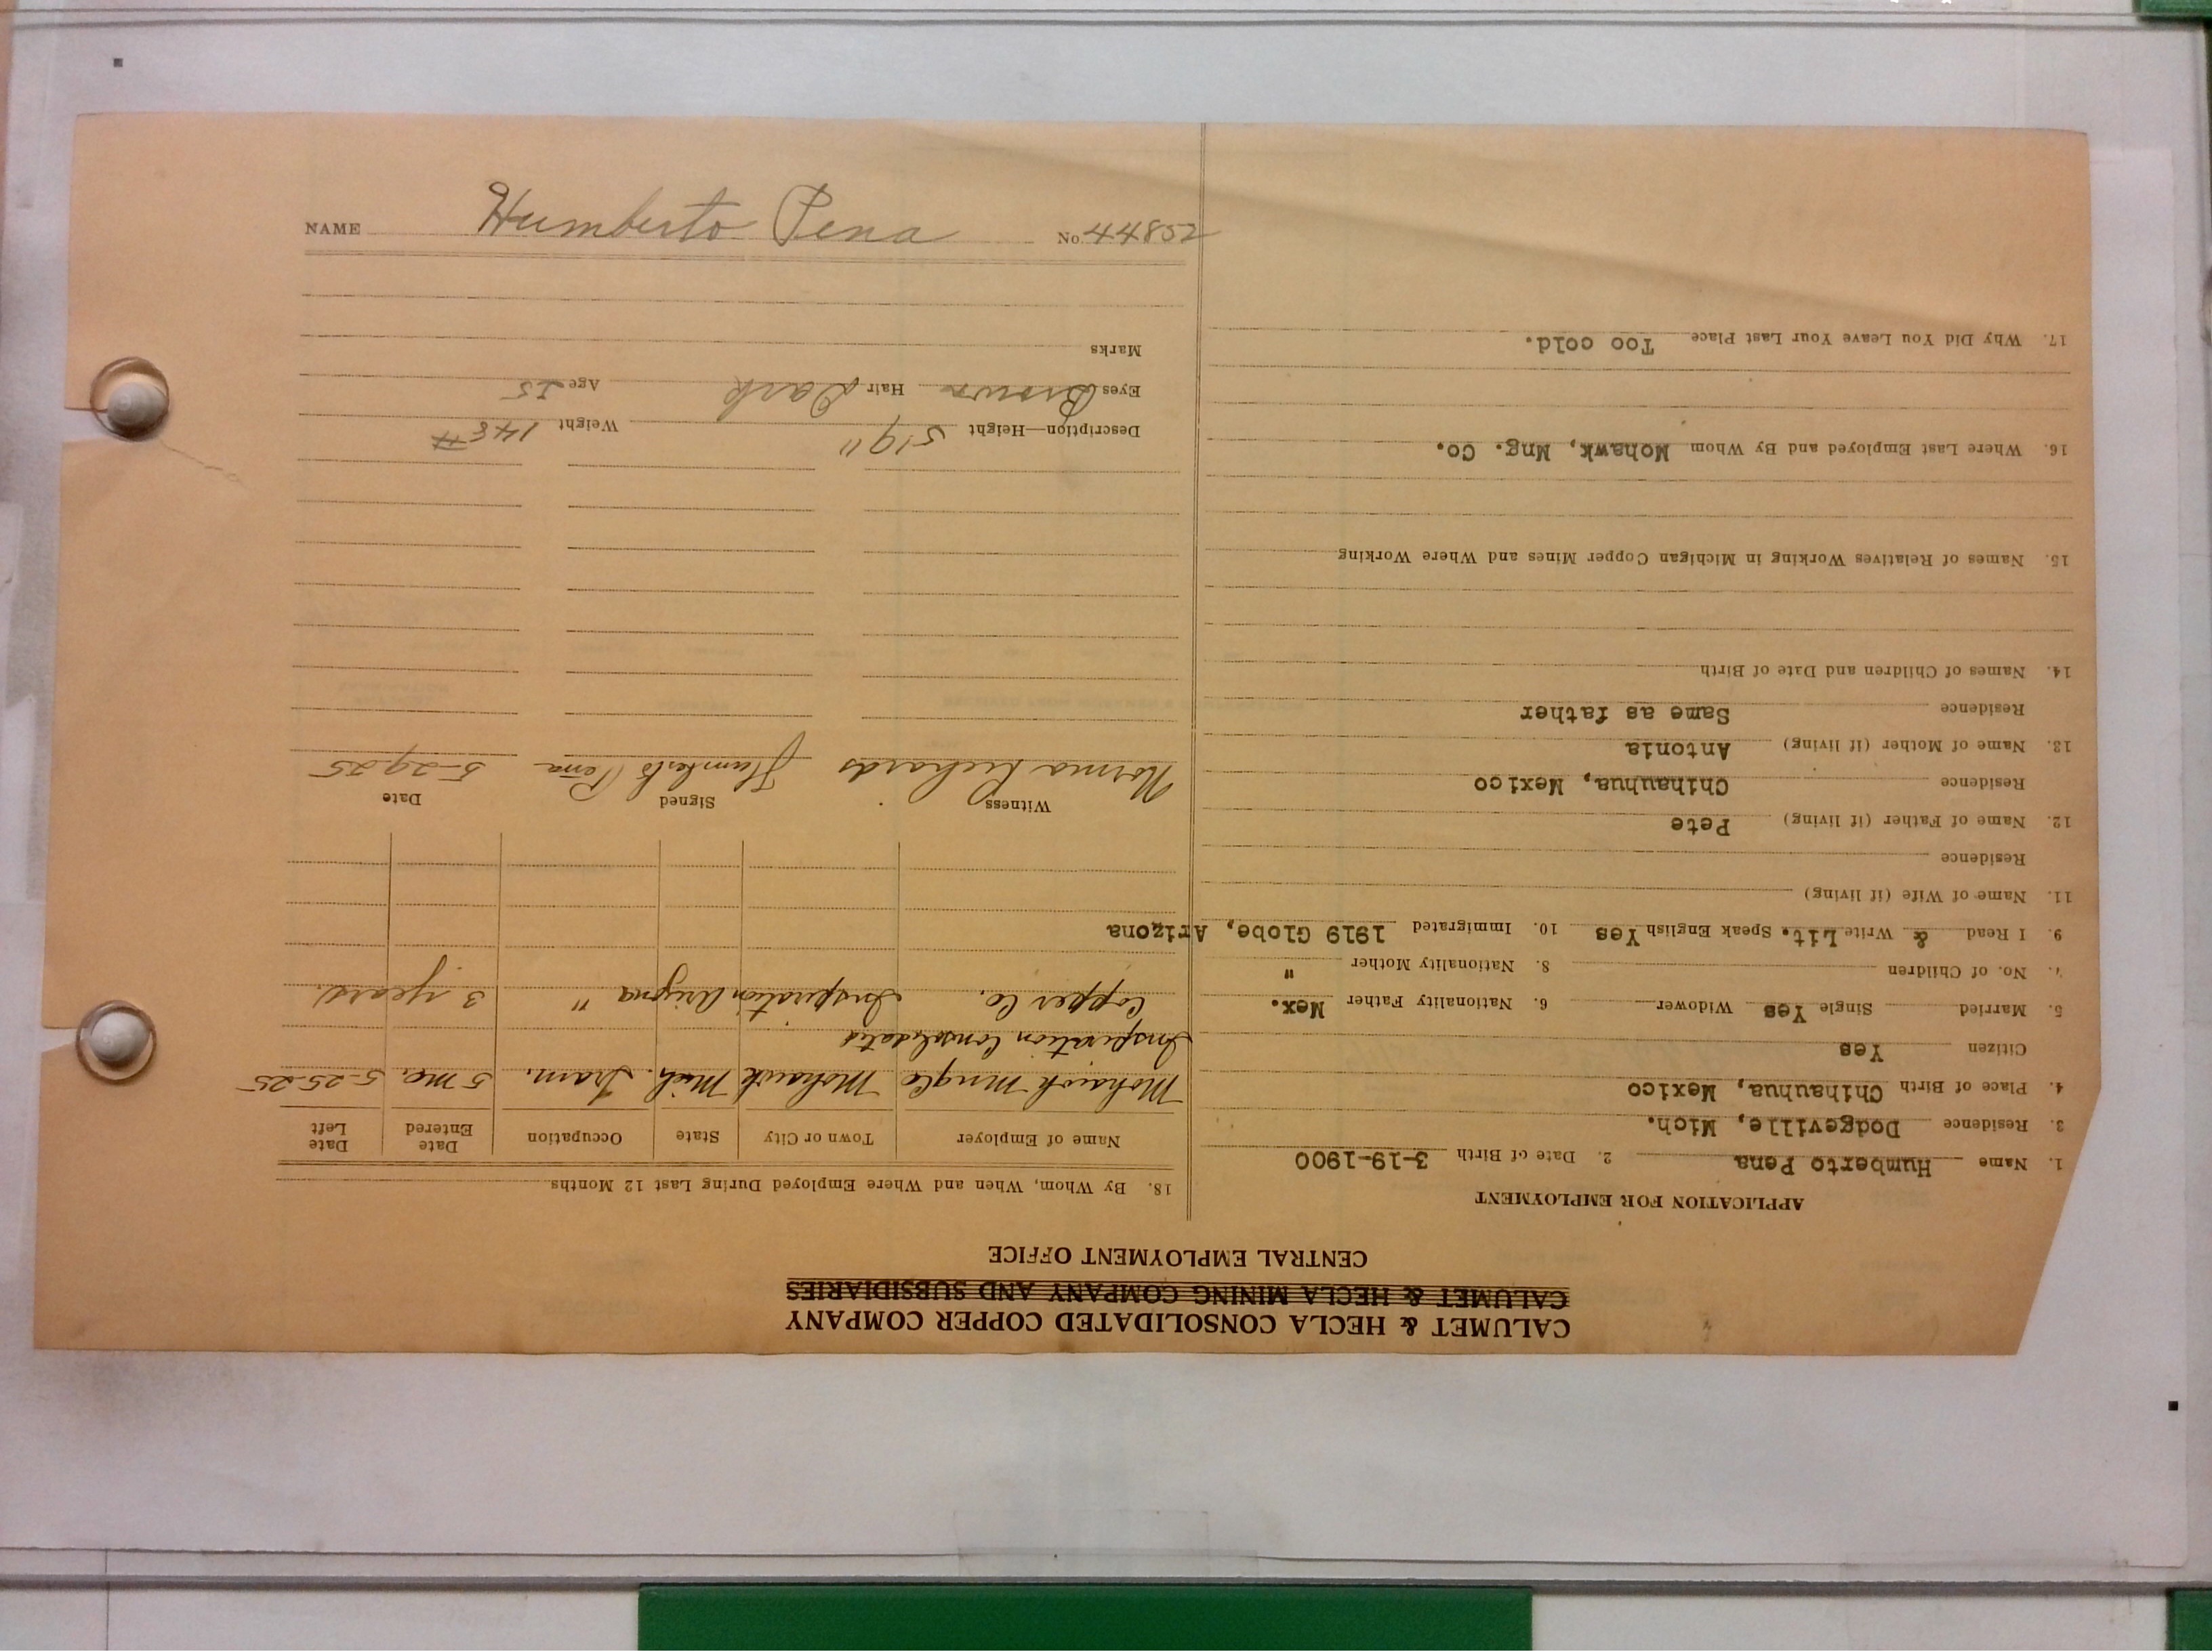 CALUMET & HECLA CONSOLIDATED COPPER COMPANY
CALUMET & HECLA MINING COMPANY AND SUBSIDIARIES
CENTRAL EMPLOYMENT OFFICE
APPLICATION FOR EMPLOYMENT
1. Name Humberto Pena 2. Date of Birth 3-19-1900
3. Residence Dodgeville, Mich.
4. Place of Birth Chihauhua, Mexico
Citizen Yes
5. Married Single Yes Widower 6. Nationality Father Mex.
7. No. of Children 8. Nationality Mother "
9. I Read & Write Lit. Speak English Yes 10. Immigrated 1919 Globe, Arizona
11. Name of Wife (if living)
Residence
12. Name of Father (if living) Pete
Residence Chihauhua, Mexico
13. Name of Mother (if living) Antonia
Residence Same as father
14. Names of Children and Date of Birth
15. Names of Relatives Working in Michigan Copper Mines and Where Working
16. Where Last Employed and By Whom Mohawk, Mng. Co.
17. Why Did You Leave Your Last Place Too cold.
18. By Whom, When and Where Employed During Last 12 Months
Name of Employer Town or City State Occupation Date Entered Date Left
Mohawk Mng Co Mohawk Mich. Tram. 5 mo. 5-25-25
Inspiration Consolidated
Copper Co. Inspiration Arizona " 3 years.
Witness Signed Date
Norma Richards Humberto Pena 5-29-25
Description—Height 5'9" Weight 148#
Eyes Brown Hair Dark Age 25
Marks
NAME Humberto Pena No. 44852